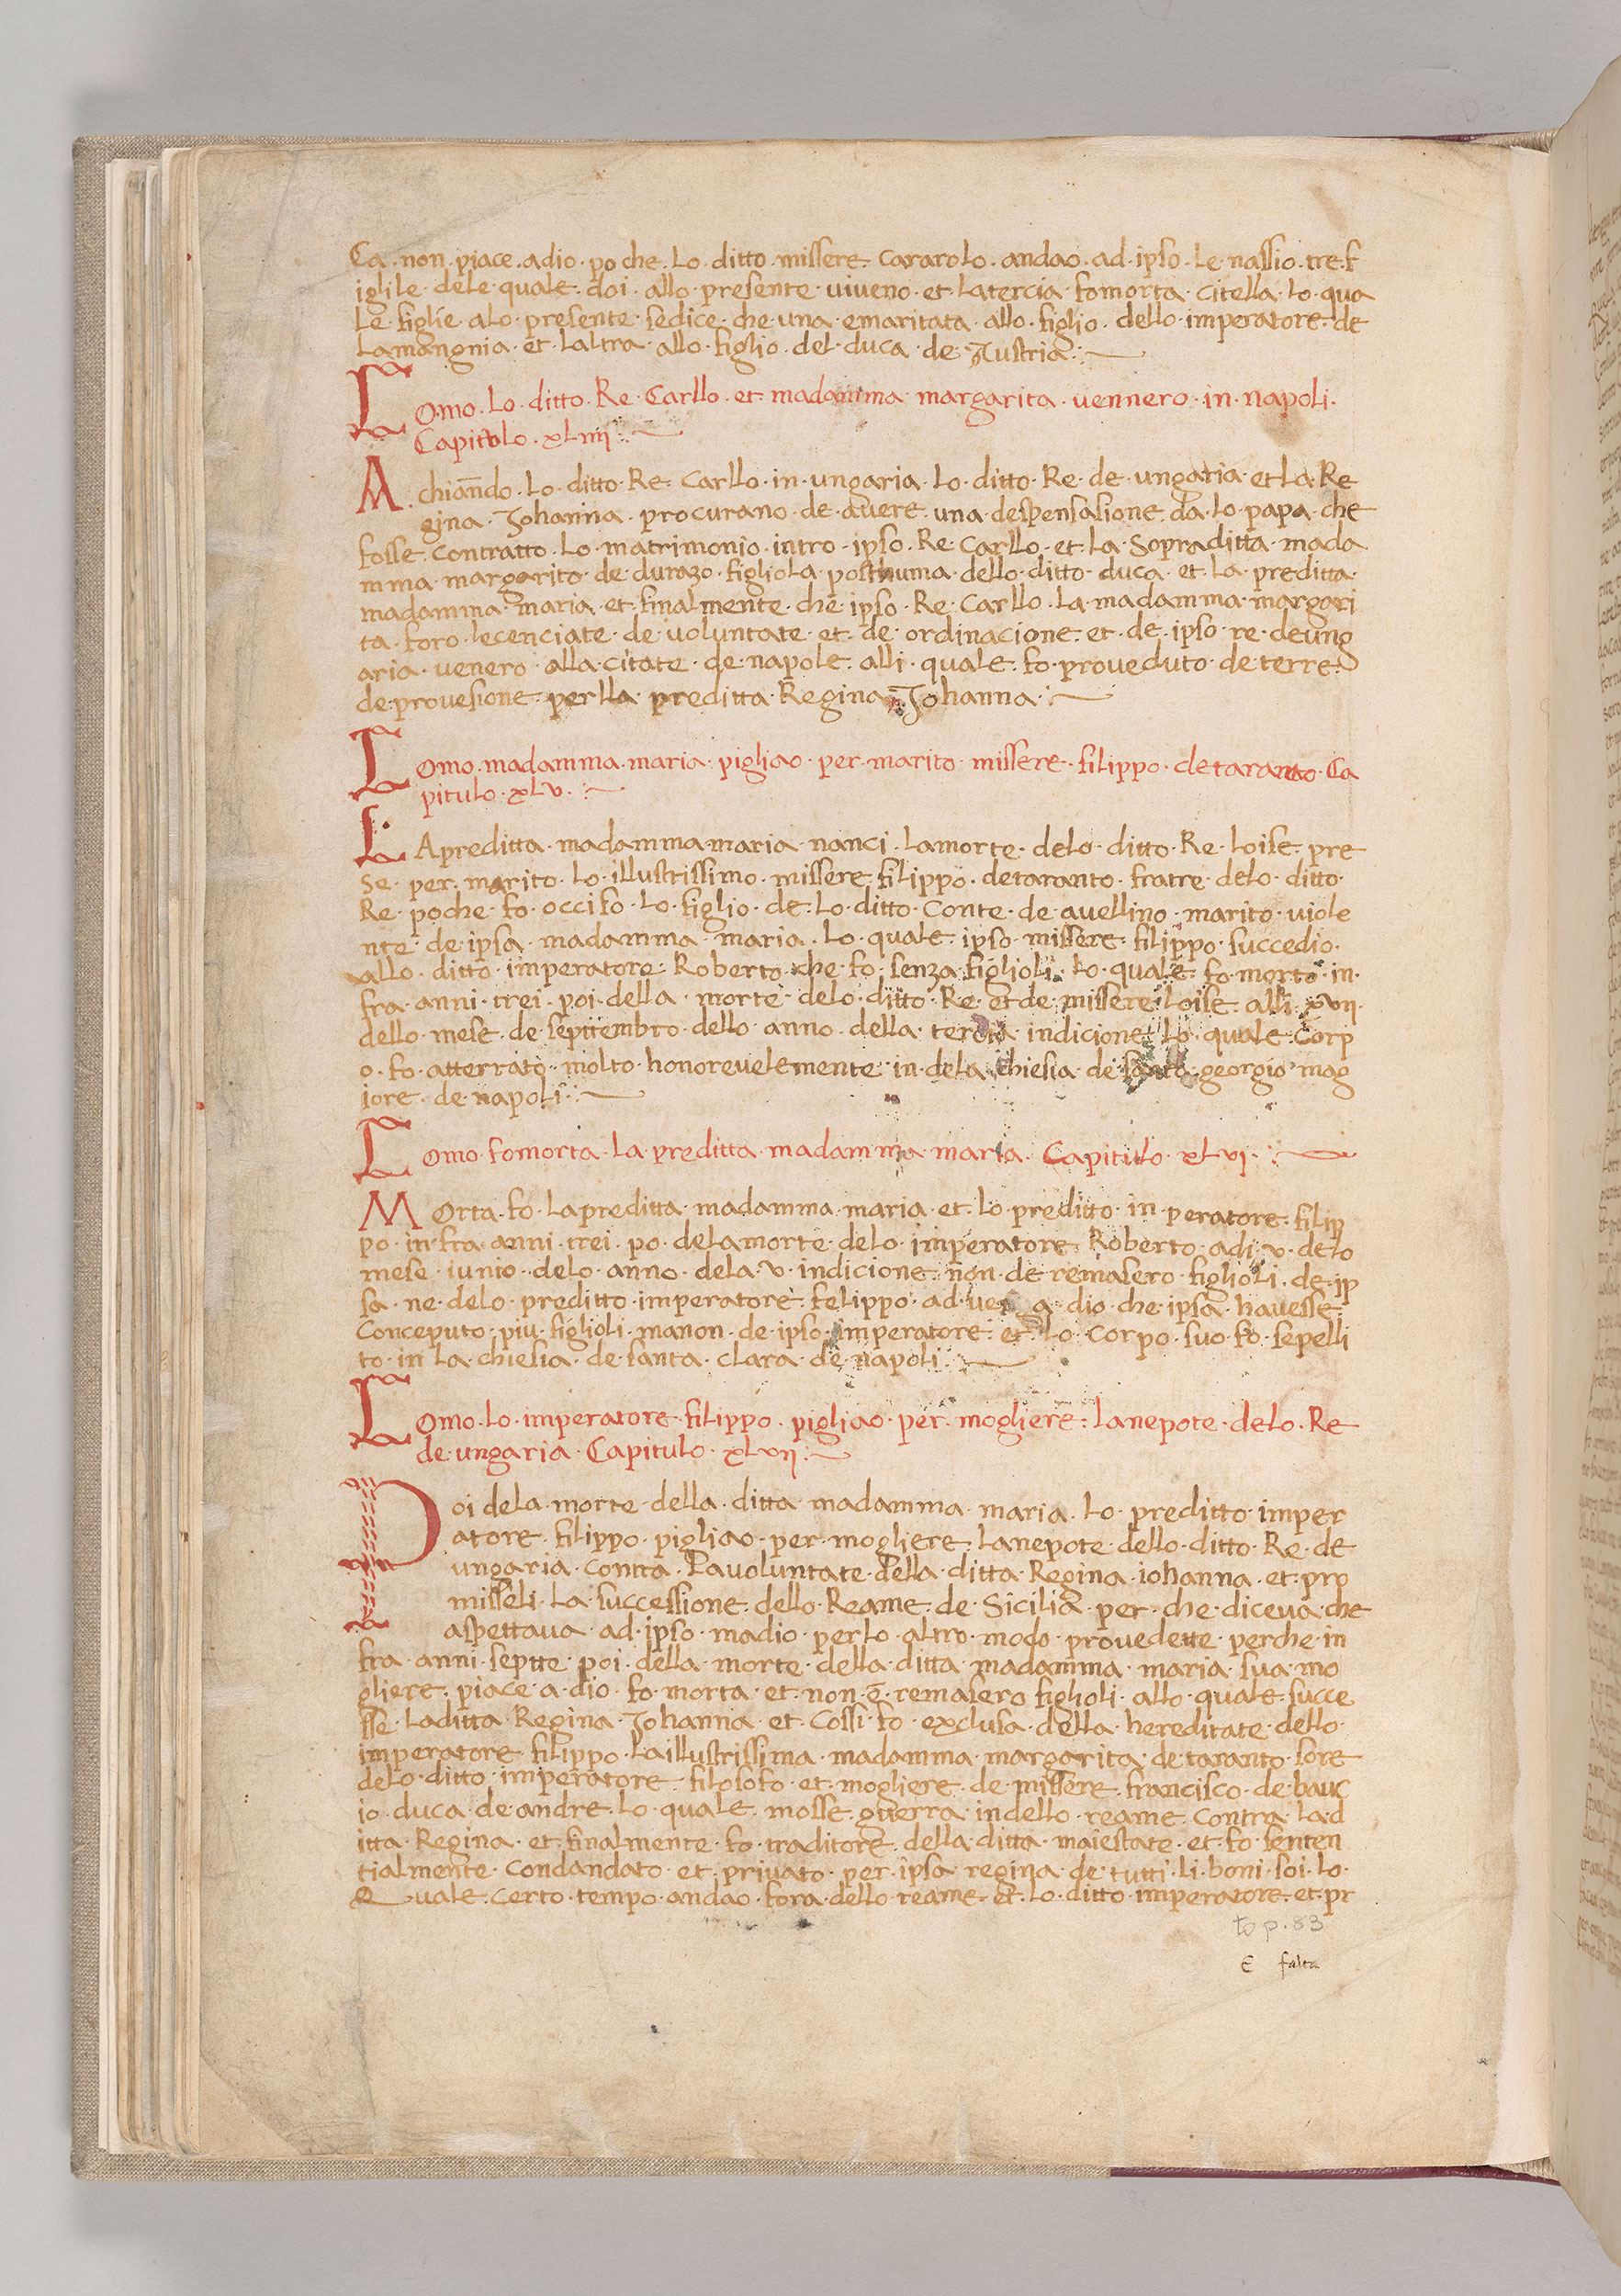 Ca · non · piace · adio · po che · Lo · ditto · missere · Cararolo · andao · ad · ipso · Le · nassio · tre · f
iglile · dele · quale · doi · allo · presente · viveno · et · Latercia · fomorta · citella · Lo · qua
Le · figlie · aLo · presente · sedice · che · una · emaritata · allo · figlio · dello · imperatore · de
Lamangnia · et · Laltra · allo · figlio · del · duca · de · Justria
Como · Lo · ditto · Re · Carllo · et · madamma · margarita · vennero · in · napoli ·
Capitolo · xLiiii
A · chiando · Lo · ditto · Re · Carllo · in · ungaria · Lo · ditto · Re · de · ungaria · et La · Re
gina · Johanna · procurano · de · avere · una · despensasione · da · lo · papa · che
fosse · contratto · Lo · matrimonio · intro · ipso · Re · Carllo · et · La · Sopraditta · mada
mma · margarito · de · durazo · figliola · posthuma · dello · ditto · duca · et · La · preditta ·
madamma · maria · et · finalmente · che ipso · Re · Carllo · La · madamma · margari
ta · foro · lecenciate · de · voluntate · et · de · ordinacione · et · de · ipso · re · deung
aria · venero · alla · citate · de · napole · alli · quale · fo · proveduto · de · terre
de · provesione · perlla · preditta · Regina · Johanna
Como · madamma · maria · pigliao · per · marito · missere · filippo · detaranto · Ca
pitulo · xLv
LA preditta · madamma maria · nanci · Lamorte · delo · ditto · Re · Loise · pre
se · per · marito · Lo · illustrissimo · missere filippo · detaranto · fratre · delo · ditto ·
Re · poche · fo · occiso · Lo · figlio · de · Lo · ditto · Conte · de avellino · marito · viole
nte · de · ipsa · madamma · maria · Lo · quale · ipso · missere · filippo · succedio ·
allo · ditto · imperatore · Roberto · che · fo · senza · figlioli · Lo · quale · fo · morto · in ·
fra · anni · trei · poi · della · morte · delo · ditto · Re · et de missere · Loise · alli · xvii ·
dello · mese · de septtembro · dello · anno · della · tercia · indicione · Lo · quale · Corp
o · fo · atterrato · molto · honorevelemente · in · dela · chiesia · de · georgio · mag
iore · de · napoli
Como · fomorta · La · preditta · madamma · maria · Capitulo · xLvi
MOrta · fo · Lapreditta · madamma · maria · et · Lo · preditto · in · peratore · filip
po · in · fra · anni · trei · po · delamorte · delo · imperatore · Roberto · adi · v · delo
mese · iunio · delo · anno · dela · v · indicione · non · de remasero · figlioli · de · ip
sa · ne · delo · preditto · imperatore · felippo · ad · dio · che · ipsa · havesse
Conceputo · piu · figlioli · manon · de · ipso · imperatore · et · Lo · Corpo · suo · fo · sepelli
to · in · La · chiesia · de · santa · clara · de · napoli
Como · Lo · imperatore · filippo · pigliao · per · mogliere · Lanepote · delo · Re
de · ungaria · Capitulo · xLvii
Poi dela · morte · della · ditta · madamma · maria · Lo · preditto · imper
atore · filippo · pigliao · per · mogliere · Lanepote · dello · ditto · Re · de
ungaria · contra · Lavoluntate · della · ditta · Regina · iohanna · et · pro
misseli · La · successione · dello · Reame · de · Sicilia · per · che · diceva · che
aspettava · ad · ipso · madio · perlo · altro · modo · provedette · perche · in
fra · anni · septte · poi · della · morte · della · ditta · madamma · maria · sua · mo
gliere · piace · a · dio · fo · morta · et · non · ē · remasero figlioli · allo · quale · succe
sse · Laditta · Regina · Johanna · et · Cossi · fo · exclusa · della · hereditate · dello ·
imperatore · filippo · Laillustrissima · madamma · margarita · de · taranto · sore
delo · ditto · imperatore · filosofo · et · mogliere · de · missere · francisco · de · bauc
io · duca · de · andre · Lo · quale · mosse · guerra · indello · reame · Contra · La · d
itta · Regina · et · finalmente · fo · traditore · della · ditta · maiestate · et · fo · senten
tialmente · condandato · et · privato · per · ipsa · regina · de · tutti · li · boni · soi · lo ·
Quale · Certo · tempo · andao · fora · dello · reame · et · Lo · ditto · imperatore · et · pr
to p. 83
E falta